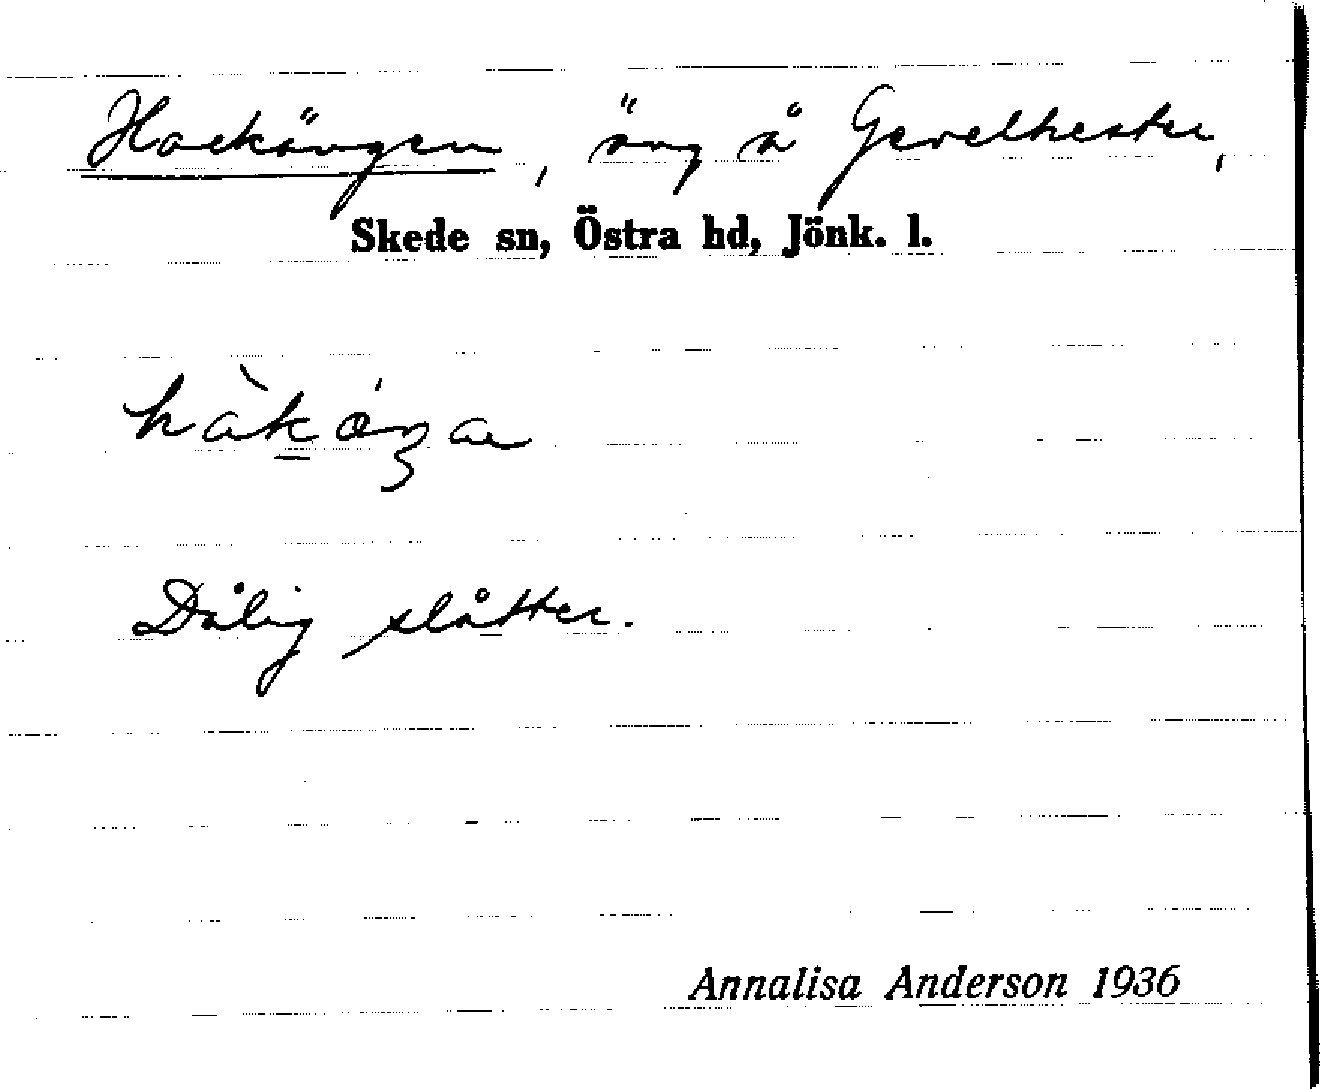 Hackängen, äng å Gevelhester,
Skede sn, Östra hd, Jönk. l.
Dålig slåtter.
Annalisa Anderson 1936